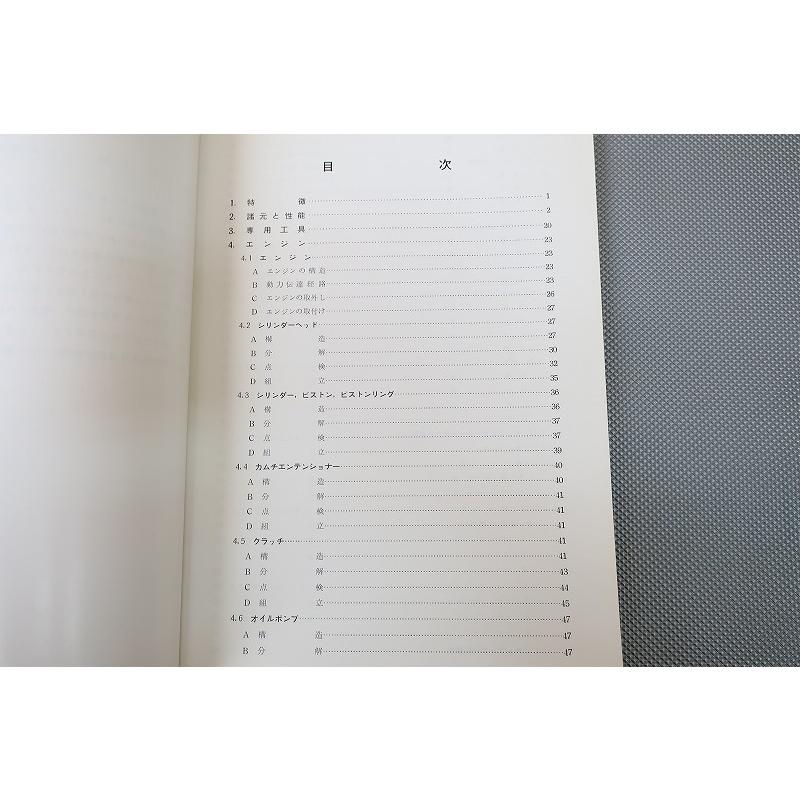 目 次
1. 特 徴 1
2. 諸元と性能 2
3. 専用工具 20
4. エンジン 23
4.1 エンジン 23
A エンジンの構造 23
B 動力伝達経路 23
C エンジンの取外し 26
D エンジンの取付け 27
4.2 シリンダーヘッド 27
A 構 造 27
B 分 解 30
C 点 検 32
D 組 立 35
4.3 シリンダー, ピストン, ピストンリング 36
A 構 造 36
B 分 解 37
C 点 検 37
D 組 立 39
4.4 カムチエンテンショナー 40
A 構 造 40
B 分 解 41
C 点 検 41
D 組 立 41
4.5 クラッチ 41
A 構 造 41
B 分 解 43
C 点 検 44
D 組 立 45
4.6 オイルポンプ 47
A 構 造 47
B 分 解 47